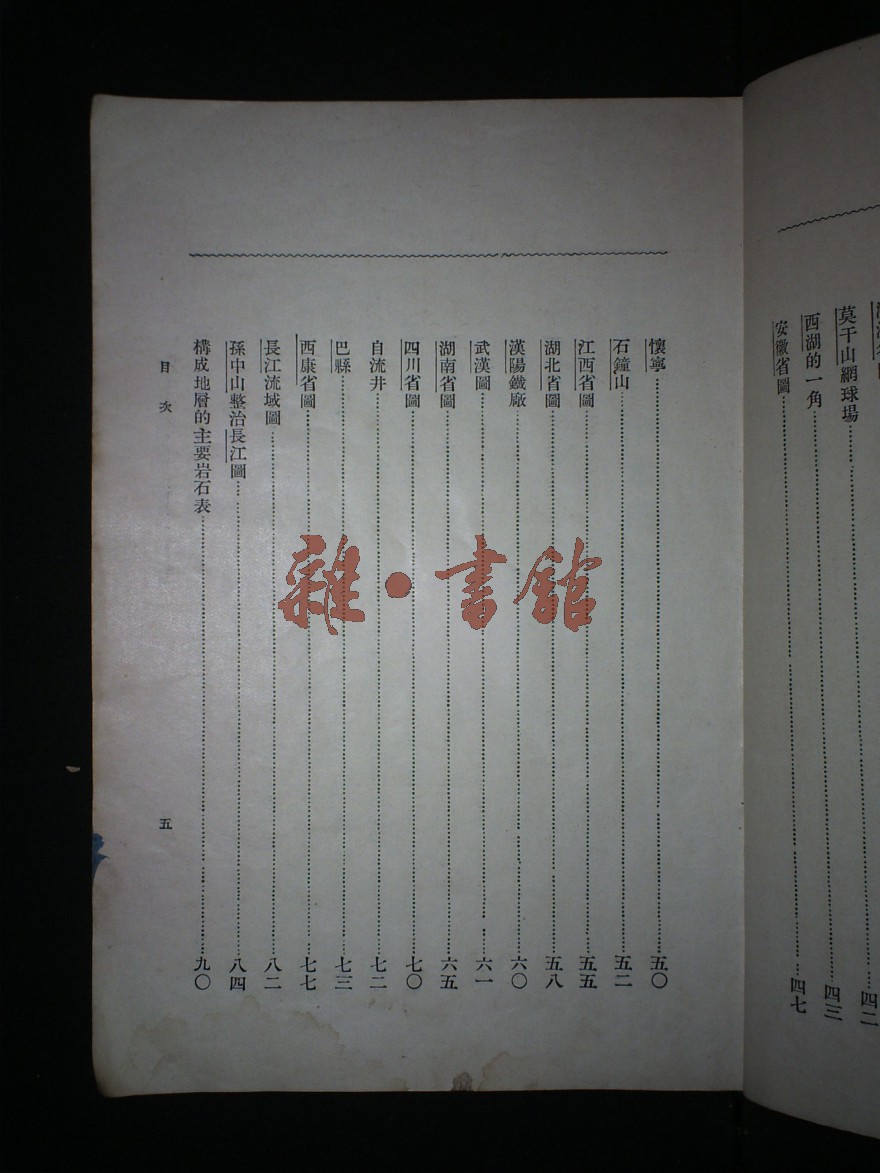 莫干山網球場……四二
西湖的一角……四三
安徽省圖……四七
懷寧……五〇
石鐘山……五二
江西省圖……五五
湖北省圖……五八
漢陽鐵廠……六〇
武漢圖……六一
湖南省圖……六五
四川省圖……七〇
自流井……七二
巴縣……七三
西康省圖……七七
長江流域圖……八二
孫中山整治長江圖……八四
構成地層的主要岩石表……九〇
目次
五
雜·書館